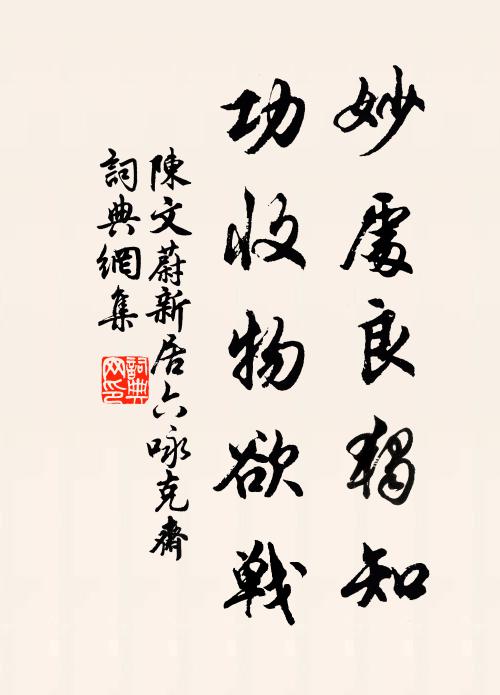 妙處良獨知
功收物欲戰
陳文蔚新居六咏克齋
詞典網集
詞典網印